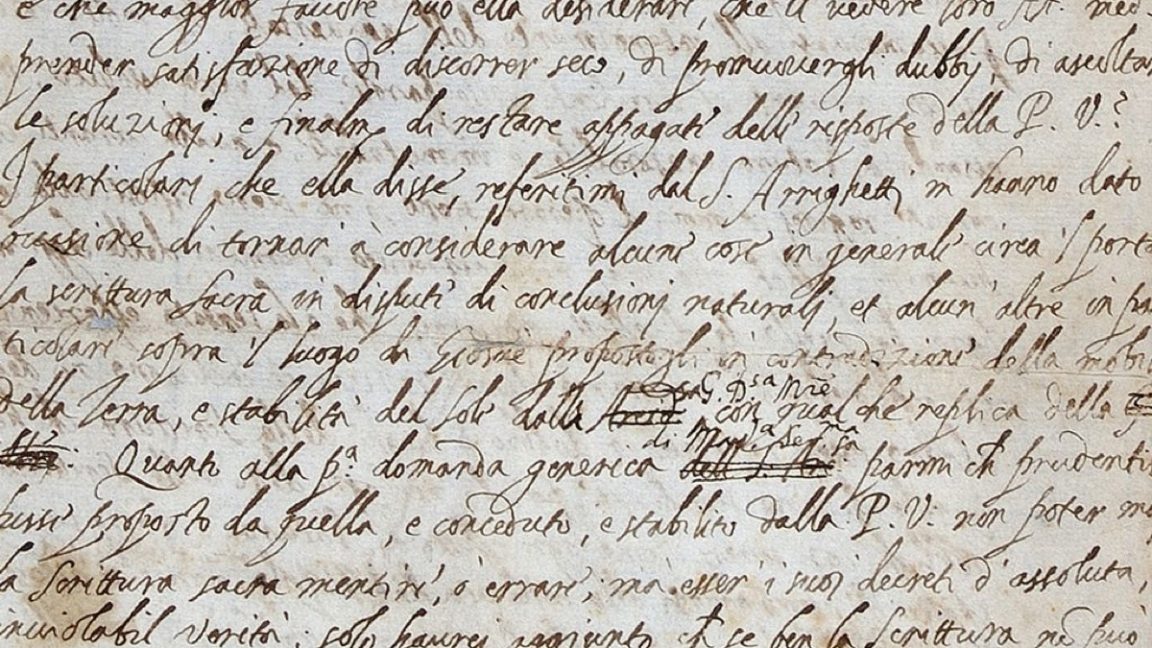 e che maggior favore può ella desiderare, che il vedere loro AA. med
prender satisfazione di discorrer seco, di promuovergli dubbij, di ascoltar
le soluzioni, e finalm.e di restare appagate delle risposte della P. V.?
I particolari che ella disse, referitimi dal S. Arrighetti m hanno dato
occasione di tornar à considerare alcune cose in generale circa 'l porta
la scrittura sacra in dispute di conclusioni naturali, et alcun' altre in par
ticolare sopra 'l luogo di Giosuè propostogli in contradizione della mobil
della Terra, e stabilità del Sole dalla G. D.sa M.re, con qualche replica della
Quanto alla p.a domanda generica di M.ma Ser.ma parmi ch prudentis
fusse proposto da quella, e conceduto, e stabilito dalla P. V. non poter m
la scrittura sacra mentire, ò errare, mà esser i suoi decreti d' assoluta,
inviolabil verità; solo haurei aggiunto ch se ben la Scrittura nō può